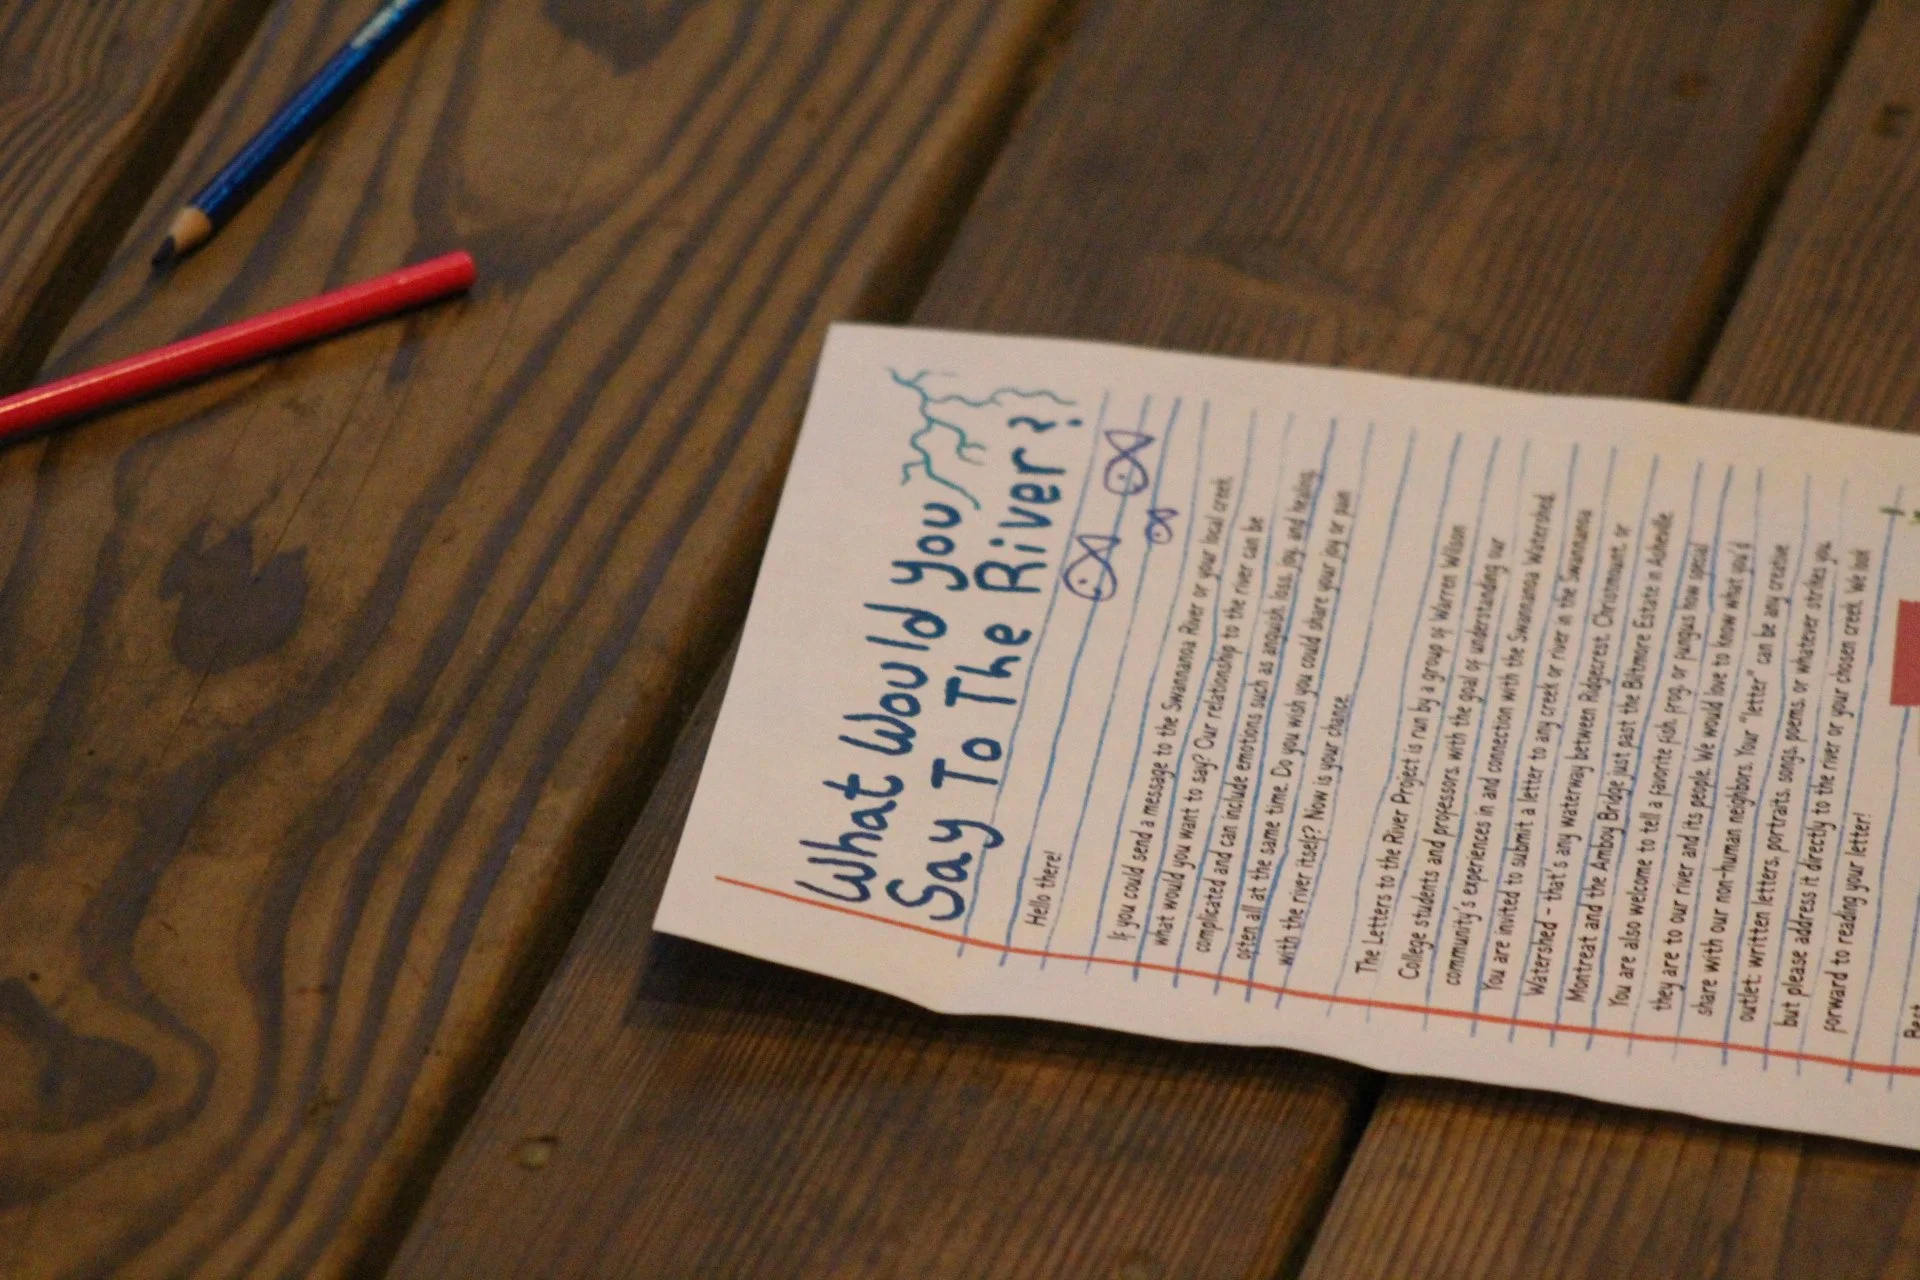 What Would You
Say To The River?
Hello there!
If you could send a message to the Swannanoa River or your local creek,
what would you want to say? Our relationship to the river can be
complicated and can include emotions such as anguish, loss, joy, and healing,
often all at the same time. Do you wish you could share your joy or pain
with the river itself? Now is your chance.
The Letters to the River Project is run by a group of Warren Wilson
College students and professors, with the goal of understanding our
community's experiences in and connection with the Swannanoa Watershed.
You are invited to submit a letter to any creek or river in the Swannanoa
Watershed – that's any waterway between Ridgecrest, Christmount, or
Montreat and the Amboy Bridge just past the Biltmore Estate in Asheville.
You are also welcome to tell a favorite fish, frog, or fungus how special
they are to our river and its people. We would love to know what you'd
share with our non-human neighbors. Your "letter" can be any creative
outlet: written letters, portraits, songs, poems, or whatever strikes you,
but please address it directly to the river or your chosen creek. We look
forward to reading your letter!
Best,